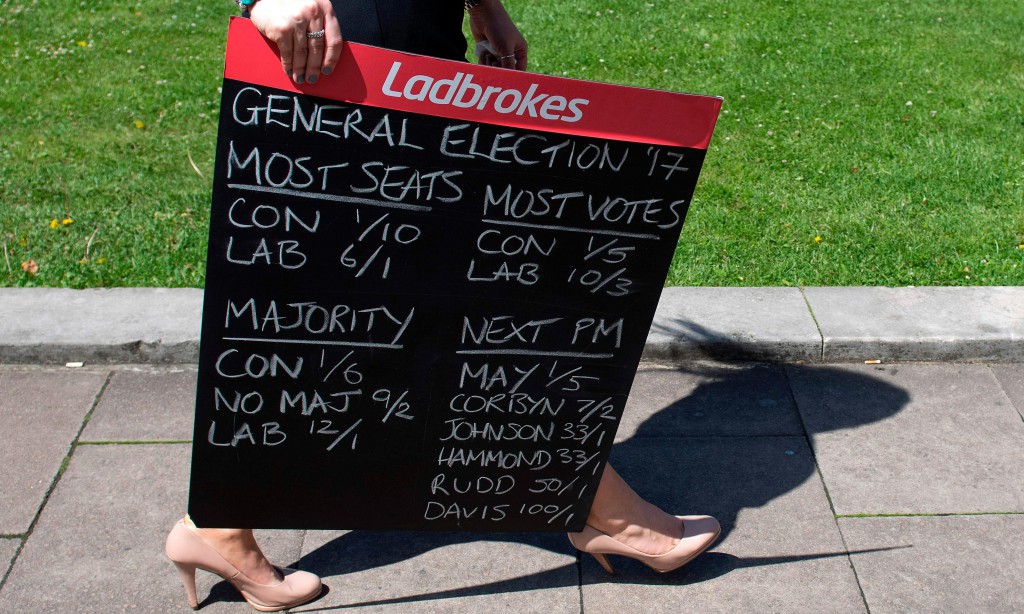 Ladbrokes
GENERAL ELECTION '17
MOST SEATS
CON 1/10
LAB 6/1
MOST VOTES
CON 1/5
LAB 10/3
MAJORITY
CON 1/6
NO MAJ 9/2
LAB 12/1
NEXT PM
MAY 1/5
CORBYN 7/2
JOHNSON 33/1
HAMMOND 33/1
RUDD 50/1
DAVIS 100/1